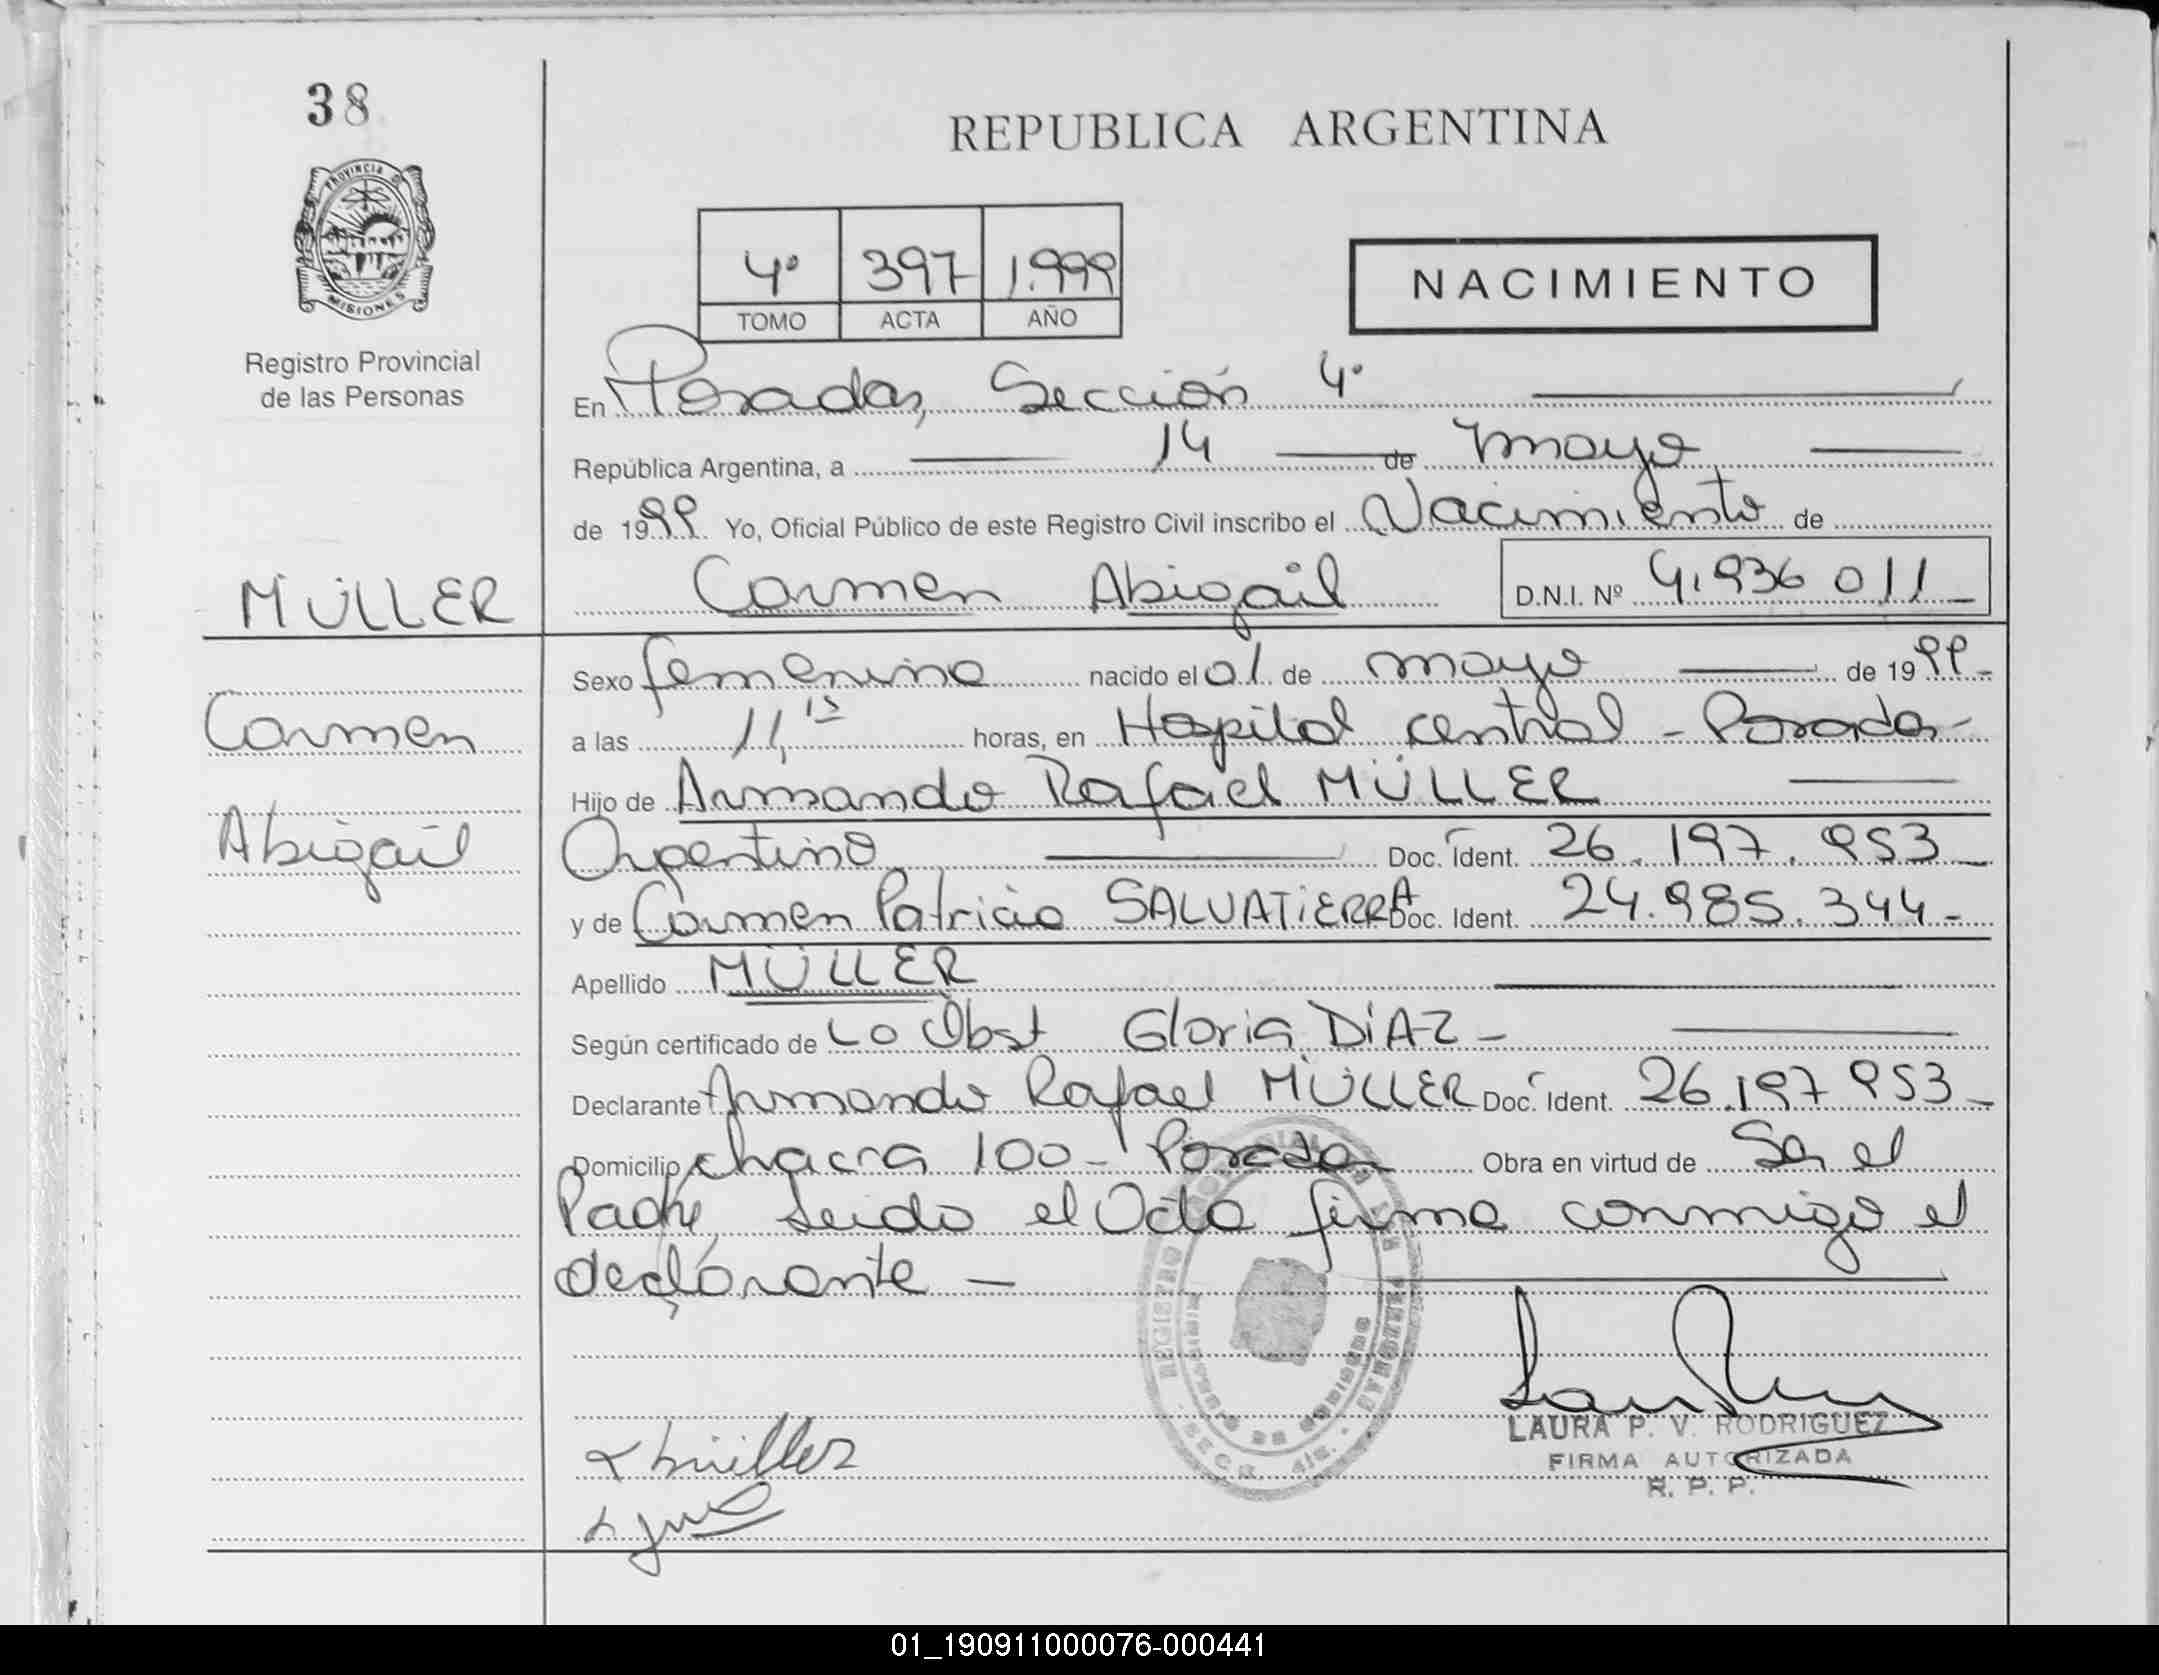 38
REPUBLICA ARGENTINA
PROVINCIA DE
MISIONES
4º 397 1.999
TOMO ACTA AÑO
NACIMIENTO
Registro Provincial
de las Personas
En Posadas, Sección 4º
República Argentina, a 14 de mayo
de 1999 Yo, Oficial Público de este Registro Civil inscribo el Nacimiento de
MÜLLER
Carmen Abigail D.N.I. Nº 41.936 011
Sexo femenino nacido el 01 de mayo de 1999
Carmen
a las 11,15 horas, en Hospital central - Posadas -
Hijo de Armando Rafael MÜLLER
Abigail
Argentino Doc. Ident. 26.197.953
y de Carmen Patricia SALVATIERRA Doc. Ident. 24.985.344 -
Apellido MÜLLER
Según certificado de La Obst Gloria DiAZ -
Declarante Armando Rafael MÜLLER Doc. Ident. 26.197 953 -
Domicilio chacra 100 - Posadas Obra en virtud de Ser el
Padre, Leido el Acta firma conmigo el
declarante -
LAURA P. V. RODRIGUEZ
FIRMA AUTORIZADA
R. P. P.
01_190911000076-000441